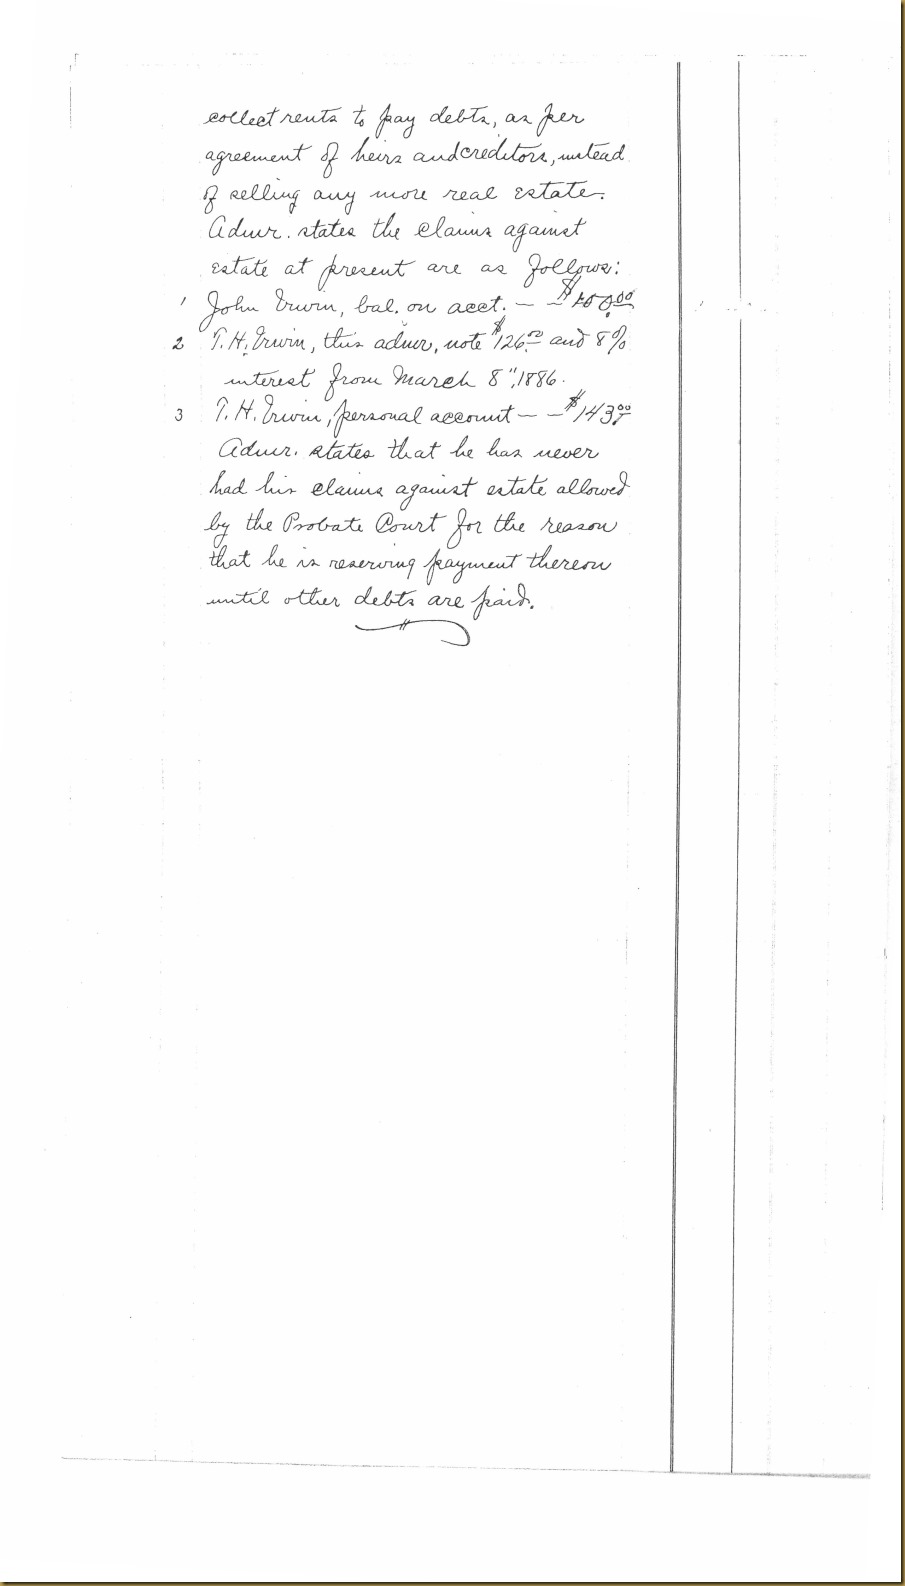 collect rents to pay debts, as per
agreement of heirs and creditors, instead
of selling any more real estate.
Admr. states the claims against
estate at present are as follows:
1 John Erwin, bal. on acct. — — $100.00
2 T. H. Erwin, this admr, note $126.00 and 8%
interest from March 8", 1886.
3 T. H. Erwin, personal account — — $143.00
Admr. states that he has never
had his claims against estate allowed
by the Probate Court for the reason
that he is reserving payment thereon
until other debts are paid.